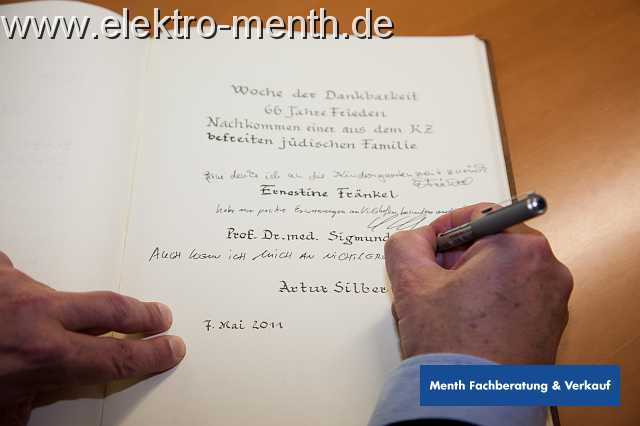 www.elektro-menth.de
Woche der Dankbarkeit
66 Jahre Frieden
Nachkommen einer aus dem KZ
befreiten jüdischen Familie
denke ich an die Kindergartenzeit zurück
Ernestine Fränkel
Habe nur positive Erinnerungen an Vilshofen
Prof. Dr. med. Sigmund
AUCH WENN ICH MICH AN NICHTS
Artur Silber
7. Mai 2011
Menth Fachberatung & Verkauf